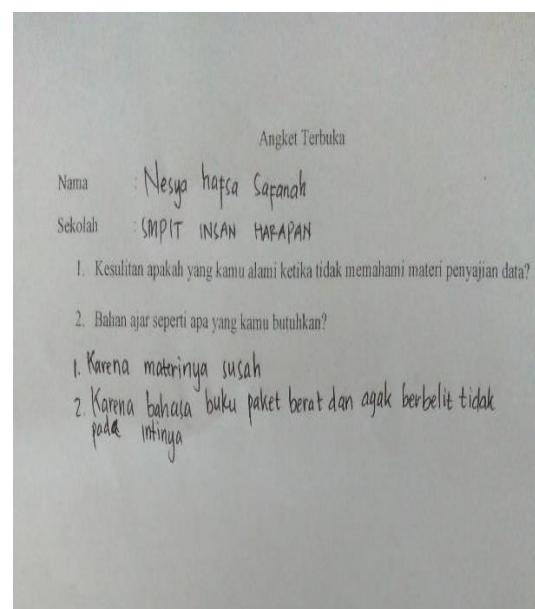 Angket Terbuka
Nama : Nesya hafsa Safanah
Sekolah : SMPIT INSAN HARAPAN
1. Kesulitan apakah yang kamu alami ketika tidak memahami materi penyajian data?
2. Bahan ajar seperti apa yang kamu butuhkan?
1. Karena materinya susah
2. Karena bahasa buku paket berat dan agak berbelit tidak
pada intinya